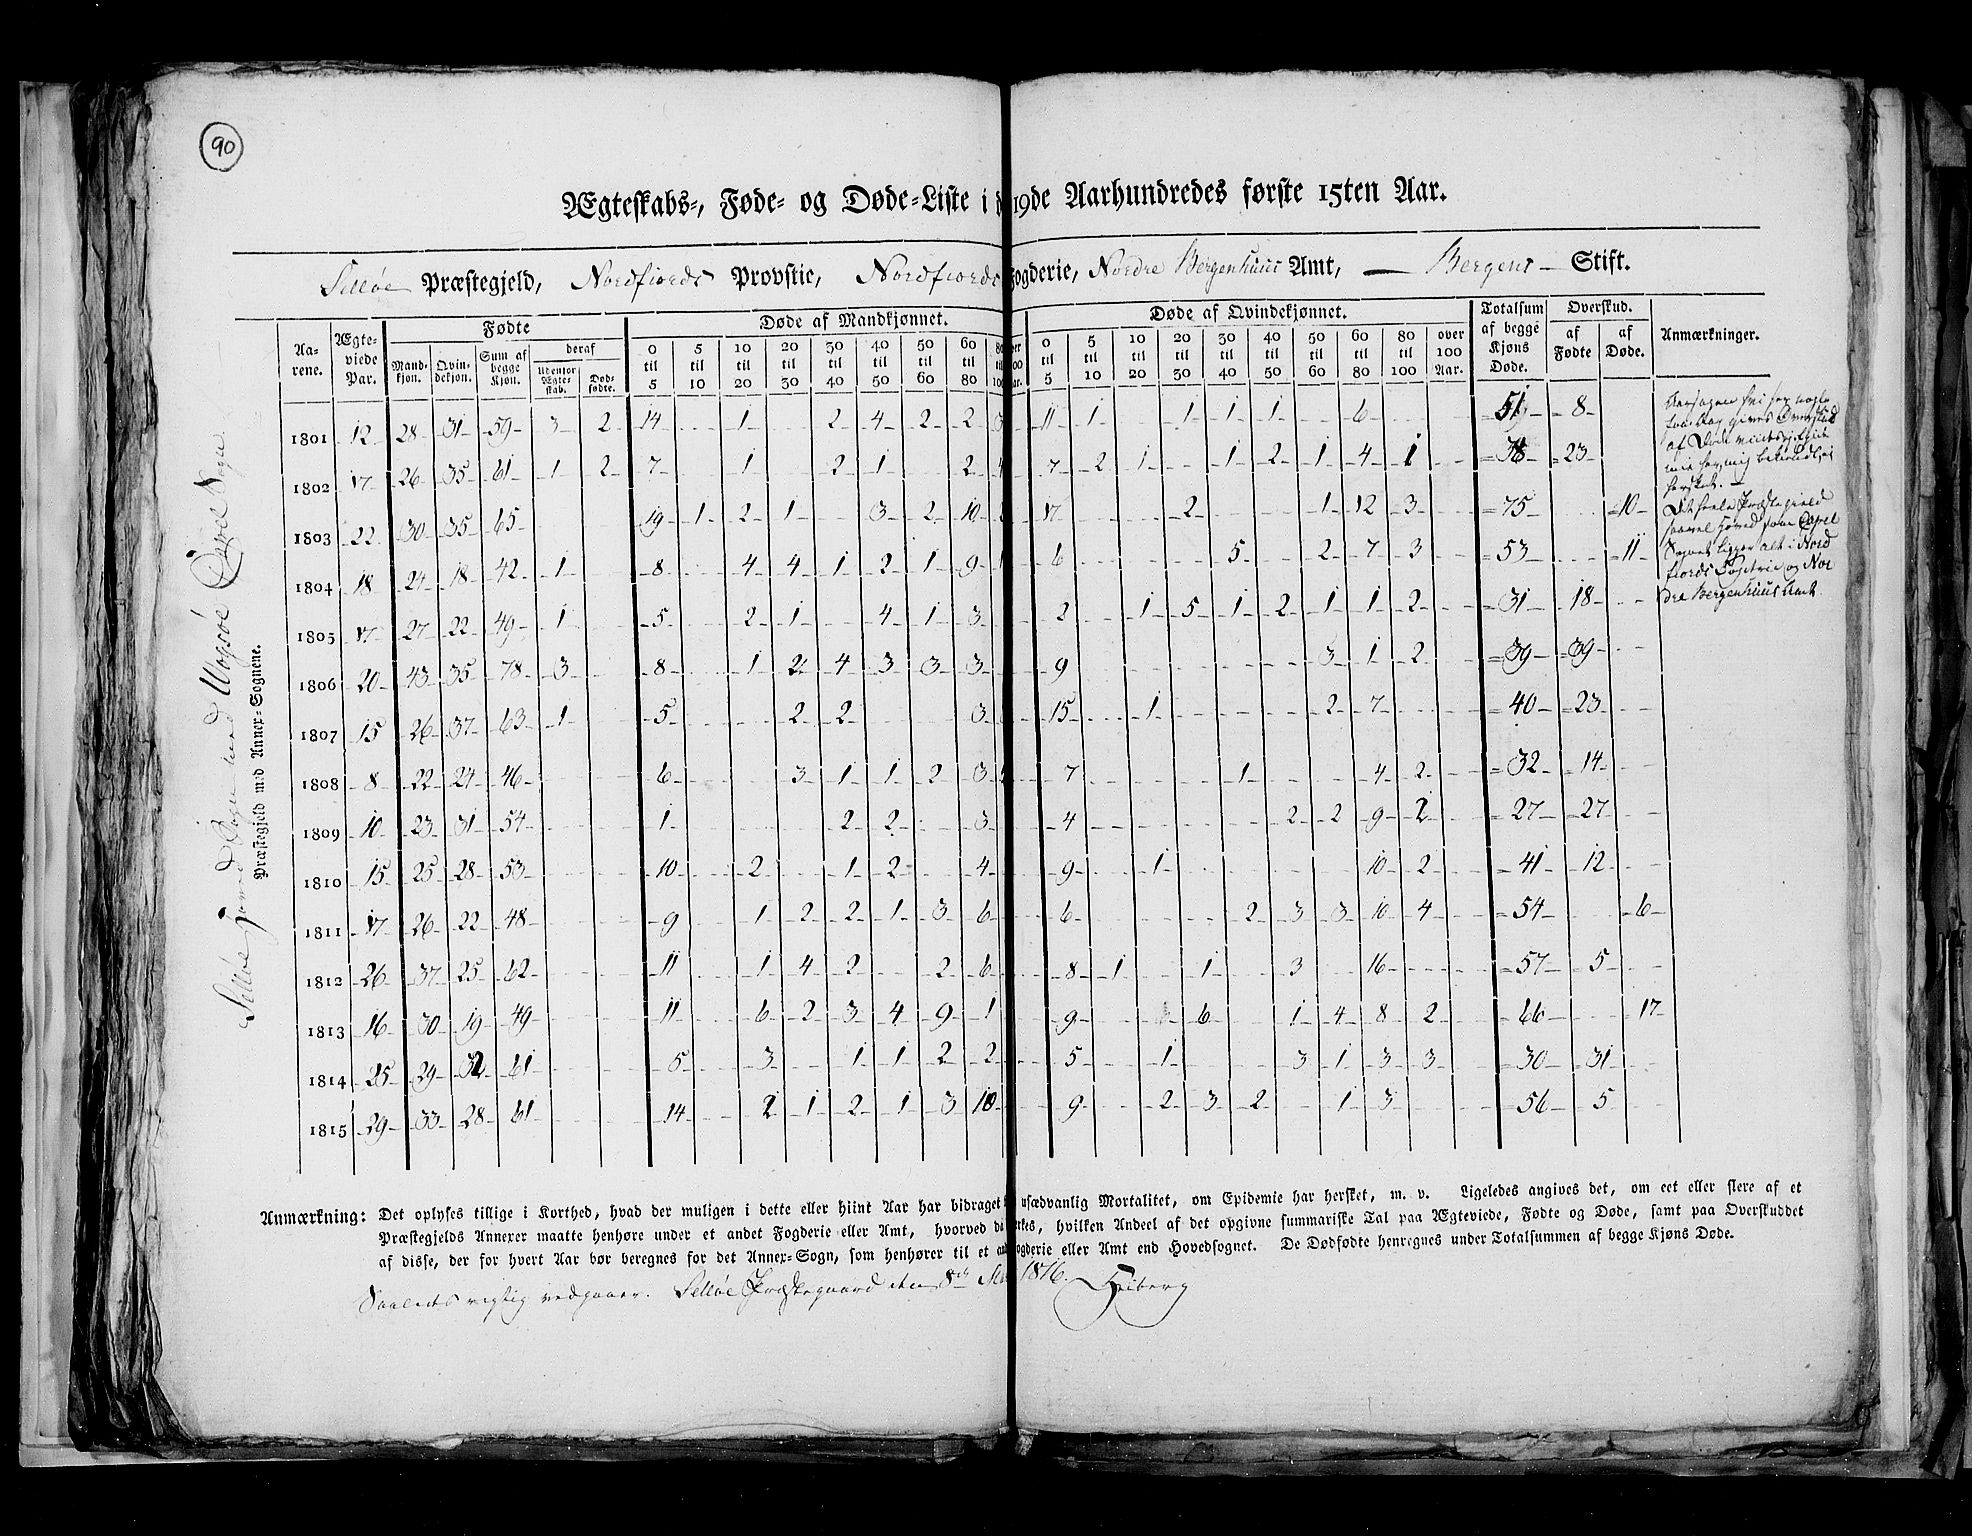 90
Ægteskabs-, Føde- og Døde-Liste i d 19de Aarhundredes første 15ten Aar.
Selløe Præstegjeld, Nordfiords Provstie, Nordfiords Fogderie, Nordre Bergenhuus Amt, — Bergens — Stift.
Selløe Hoved Sogn med Wogsøe Capel Sogn.
Præstegjeld med Annex-Sognene.
Aa-rene. Ægte-viede Par. Fødte Døde af Mandkjønnet. Døde af Qvindekjønnet. Totalsum af begge Kjøns Døde. Overskud. Anmærkninger.
Mand-kjøn. Qvin-dekjøn. Sum af begge Kjøn. deraf Udenfor Ægte-stab. Død-fødte. af Fødte af Døde.
0 til 5 5 til 10 10 til 20 20 til 30 30 til 40 40 til 50 50 til 60 60 til 80
0 til 5 5 til 10 10 til 20 20 til 30 30 til 40 40 til 50 50 til 60 60 til 80 80 til 100 over 100 Aar.
1801 12 28 31 59 3 2 14 1 2 4 2 2 11 1 1 1 1 6 51 8
1802 17 26 35 61 1 2 7 1 2 1 2 4 7 2 1 1 2 1 4 1 38 23
1803 22 30 35 65 19 1 2 1 3 2 10 17 2 1 12 3 75 10
1804 18 24 18 42 1 8 4 4 1 2 1 9 1 6 5 2 7 3 53 11
1805 17 27 22 49 1 5 2 1 4 1 3 2 1 5 1 2 1 1 2 31 18
1806 20 43 35 78 3 8 1 2 4 3 3 3 9 3 1 2 39 39
1807 15 26 37 63 1 5 2 2 3 15 1 2 7 40 23
1808 8 22 24 46 6 3 1 1 2 3 7 1 4 2 32 14
1809 10 23 31 54 1 2 2 3 4 2 2 9 2 27 27
1810 15 25 28 53 10 2 1 2 4 9 1 10 2 41 12
1811 17 26 22 48 9 1 2 2 1 3 6 6 2 3 3 10 4 54 6
1812 26 37 25 62 11 1 4 2 2 6 8 1 1 3 16 57 5
1813 16 30 19 49 11 6 2 3 4 9 1 9 6 1 4 8 2 66 17
1814 25 29 32 61 5 3 1 1 2 2 5 1 3 1 3 3 30 31
1815 29 33 28 61 14 2 1 2 1 3 10 9 2 3 2 1 3 56 5
af Døde
Det heele Præstegield
saavel Hoved som Capel
Sognet ligger alt i Nord
fiords Fogderie og Nor
dre Bergenhuus Amt.
Anmærkning: Det oplyses tillige i Korthed, hvad der muligen i dette eller hiint Aar har bidraget usædvanlig Mortalitet, om Epidemie har hersket, m. v. Ligeledes angives det, om eet eller flere af et
Præstegjelds Annexer maatte henhøre under et andet Fogderie eller Amt, hvorved hvilken Andeel af det opgivne summariske Tal paa Ægteviede, Fødte og Døde, samt paa Overskuddet
af disse, der for hvert Aar bør beregnes for det Annex-Sogn, som henhører til et Fogderie eller Amt end Hovedsognet. De Dødfødte henregnes under Totalsummen af begge Kjøns Døde.
Saaledes rigtig vedgaaer. Selløe Præstegaard den 8de 1816. Heiberg